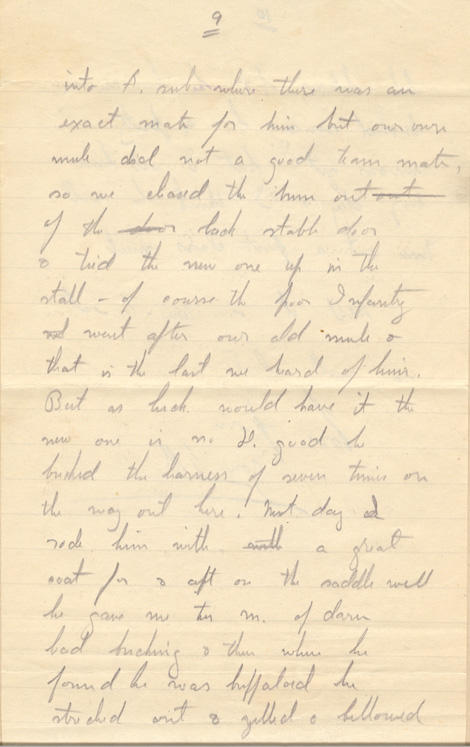 9
into A. sub where there was an
exact mate for him but our own
mule did not a good team mate,
so we chased the him out out
of the door back stable door
& tied the new one up in the
stall - of course the poor Infantry
went after our old mule &
that is the last we heard of him.
But as luck would have it the
new one is no D. good he
bucked the harness off seven times on
the way out here. Next day I
rode him with with a great
coat for & aft on the saddle well
he gave me ten m. of darn
bad bucking & then when he
found he was buffaloed he
stretched out & yelled & bellowed